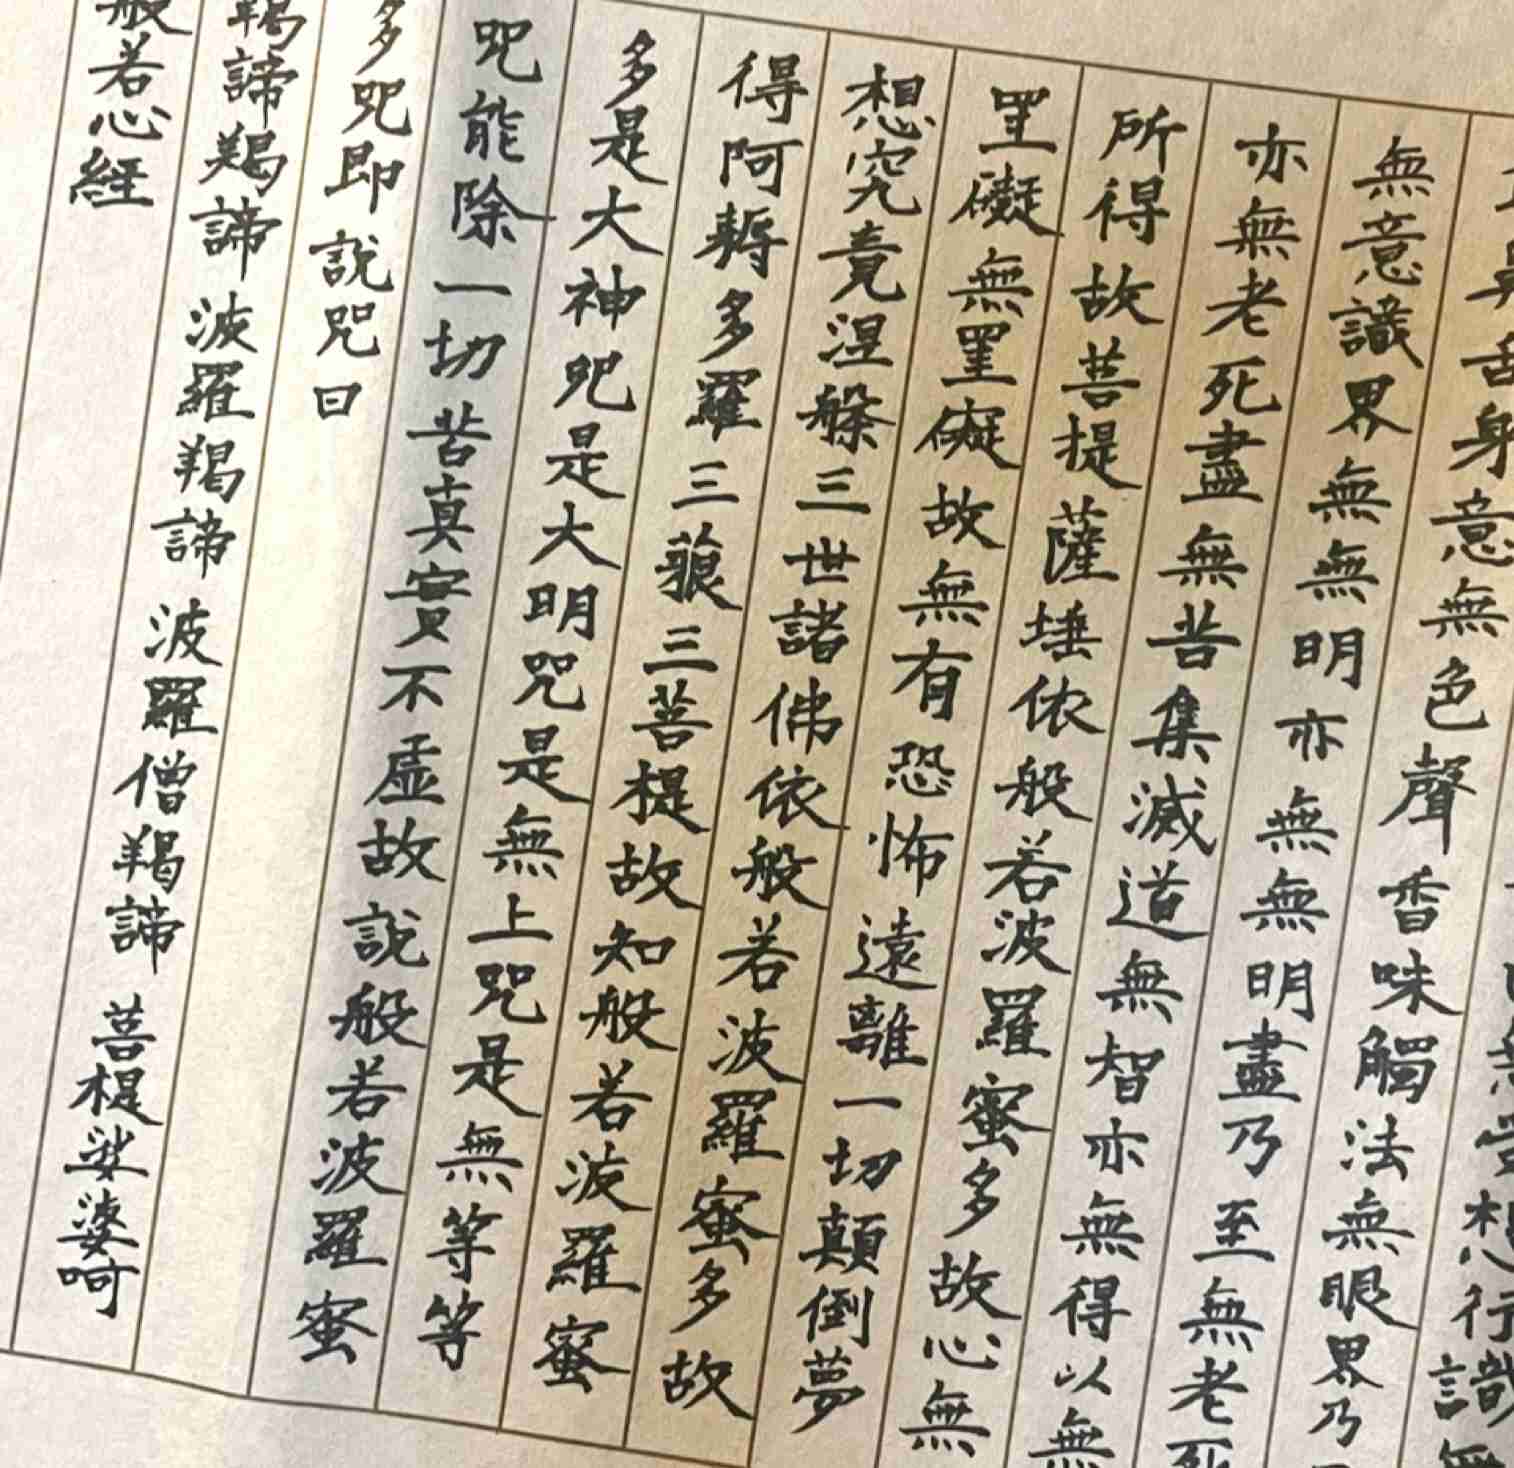 受想行識無
舌身意無色聲香味觸法無眼界乃
無意識界無無明亦無無明盡乃至無老死
亦無老死盡無苦集滅道無智亦無得以無
所得故菩提薩埵依般若波羅蜜多故心無
罣礙無罣礙故無有恐怖遠離一切顛倒夢
想究竟涅槃三世諸佛依般若波羅蜜多故
得阿耨多羅三藐三菩提故知般若波羅蜜
多是大神咒是大明咒是無上咒是無等等
咒能除一切苦真實不虚故説般若波羅蜜
多咒即説咒曰
羯諦羯諦波羅羯諦波羅僧羯諦菩提娑婆呵
般若心経